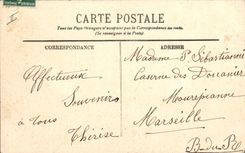 CARTE POSTALE
Tous les Pays Étrangers n'acceptent pas la Correspondance au recto.
(Se renseigner à la Poste)
CORRESPONDANCE
ADRESSE
Affectueux
Souvenirs
à tous
Thérèse
Madame P. Sébastianni
Caserne des Douanier
Mourepianne
Marseille
B-du-R